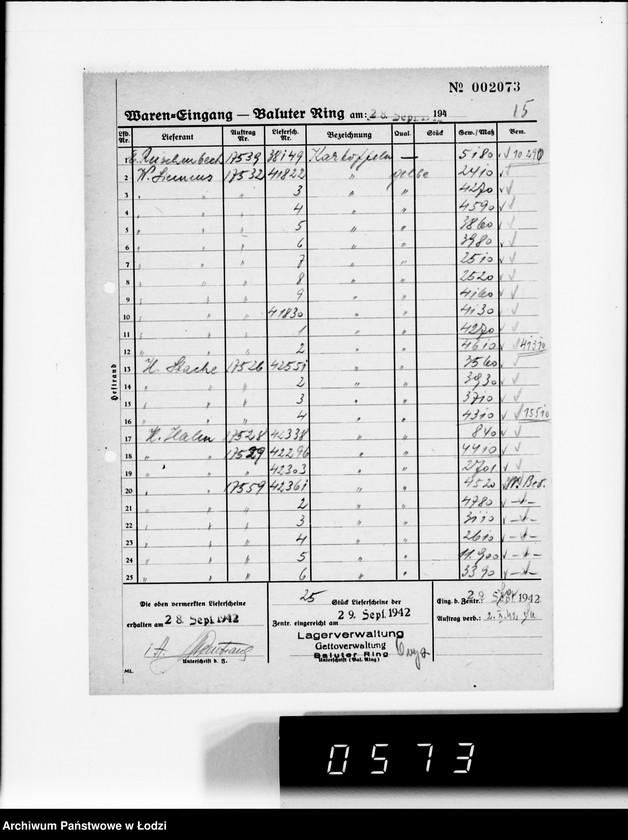 № 002073
Waren=Eingang — Baluter Ring am: 28. Sept. 194
15
Lfd. Nr. Lieferant Auftrag Nr. Liefersch. Nr. Bezeichnung Qual. Stück Gew./Maß Bem.
1 17539 38149 Kartoffeln — 5180 √ 10290
2 W. Siemens 17532 41822 " gelbe 2410 √
3 " " " 3 " " 4270 √ √
4 " " " 4 " " 4590 √ √
5 " " " 5 " " 3860 √ √
6 " " " 6 " " 3980 √ √
7 " " " 7 " " 2510 √ √
8 " " " 8 " " 2520 √ √
9 " " " 9 " " 4160 √ √
10 " " " 41830 " " 4130 √ √
11 " " " 1 " " 4270 √ √
12 " " " 2 " " 4610 √ √
13 H. Stache 17526 42551 " " 3560 √
14 " " " 2 " " 3930 √ √
15 " " " 3 " " 3710 √ √
16 " " " 4 " " 4310 √ √ 15510
17 H. Hahn 17528 42338 " " 840 √ √
18 " " 17529 42296 " " 4410 √ √
19 " " " 42303 " " 2701 √ √
20 " " 17559 42361 " " 4520
21 " " " 2 " " 4780 √ -"-
22 " " " 3 " " 3110 √ -"-
23 " " " 4 " " 2610 √ -"-
24 " " " 5 " " 11.900 √ -"-
25 " " " 6 " " 3390 √ -"-
Heftrand
Die oben vermerkten Lieferscheine
erhalten am 28. Sept. 1942
i.A.
Unterschrift d. L.
ML.
25 Stück Lieferscheine der
Zentr. eingereicht am 29. Sept. 1942
Lagerverwaltung
Gettoverwaltung
Baluter Ring
Unterschrift (Bal. Ring)
Eing. b. Zentr. 29. Sept. 1942
Auftrag verb.:
0573
Archiwum Państwowe w Łodzi